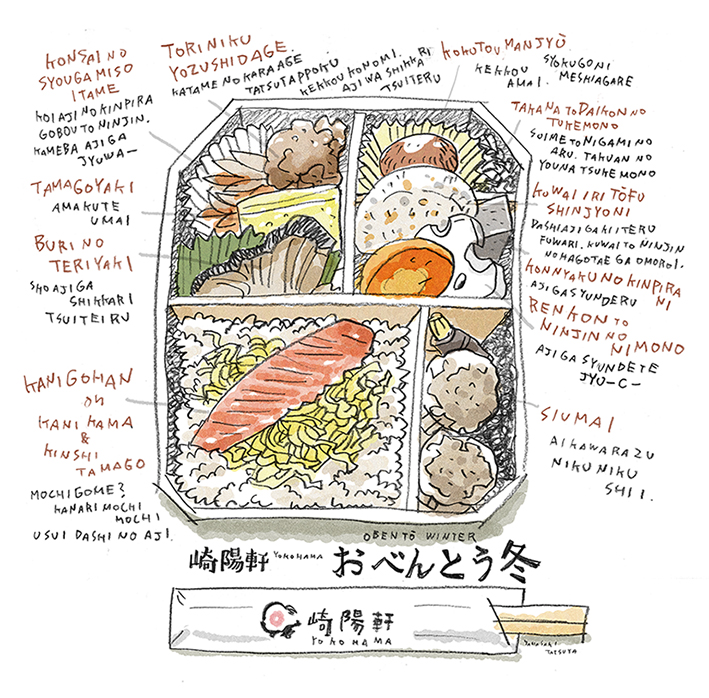 KONSAI NO
SYOUGAMISO
ITAME
KOI AJI NO KINPIRA
GOBOU TO NINJIN.
KAMEBA AJI GA
JYUWA—
TORINIKU
YOZUSHIDAGE.
KATAME NO KARAAGE
TATSUTAPPOKU
KEKKOU KONOMI.
AJI WA SHIKKARI
TSUITERU
KOKUTOU MANJYŪ
SYOKUGONI
MESHIAGARE
KEKKOU
AMAI.
TAKANA TO DAIKON NO
TUKEMONO
SUIME TO NIGAMI NO
ARU. TAKUAN NO
YOUNA TSUKEMONO
KUWAI IRI TŌFU
SHINJYO NI
DASHI AJI GA KIITERU
FUWARI. KUWAI TO NINJIN
NO HAGOTAE GA OMOROI.
KONNYAKU NO KINPIRA
NI
AJI GA SYUNDERU
RENKON TO
NINJIN NO
NIMONO
AJI GA SYUNDETE
JYU-C-
SIUMAI
AIKAWARAZU
NIKU NIKU
SHII.
TAMAGOYAKI
AMAKUTE
UMAI
BURI NO
TERIYAKI
SHOAJI GA
SHIKKARI
TSUITEIRU
KANI GOHAN
ON
KANI KAMA
&
KINSHI
TAMAGO
MOCHIGOME?
KANARI MOCHI
MOCHI
USUI DASHI NO AJI.
OBENTŌ WINTER
崎陽軒 YOKOHAMA おべんとう冬
崎陽軒
YOKOHAMA
TATSUYA